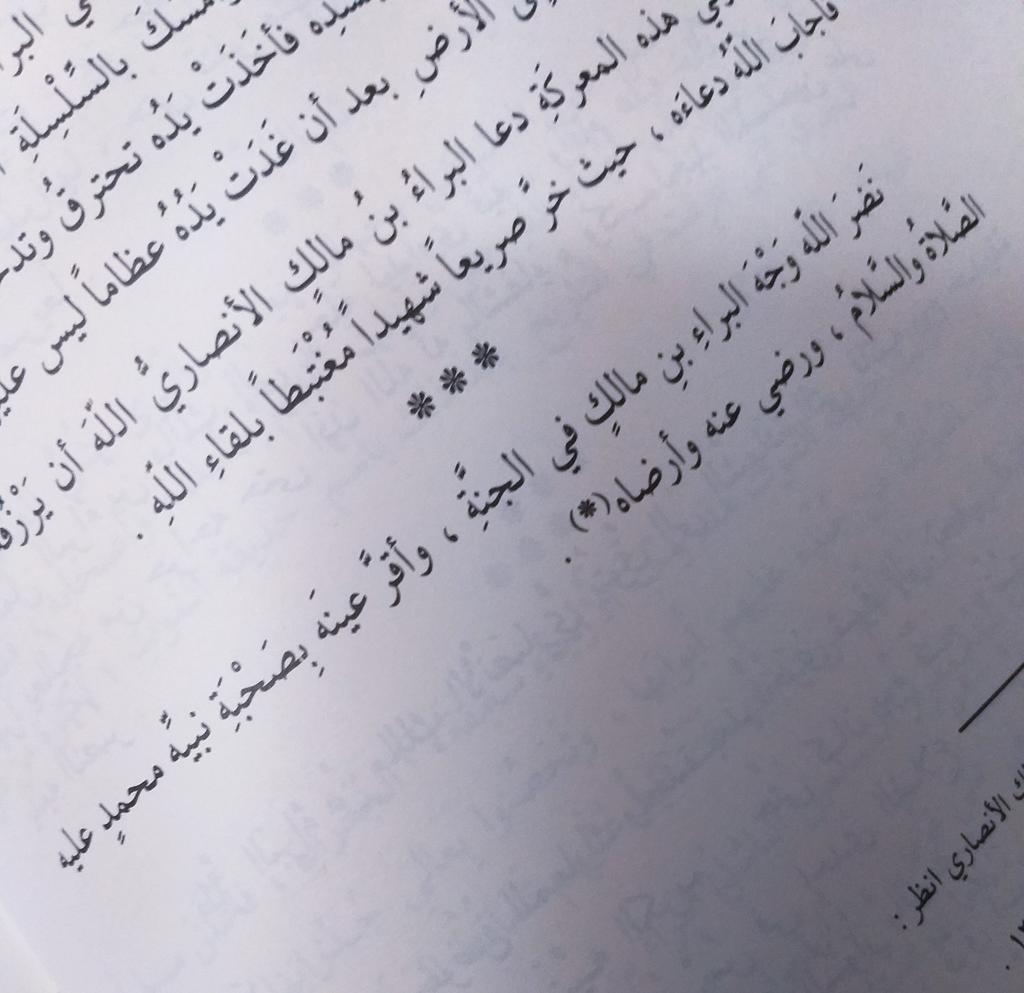 بالسِّلْسِلَةِ
فأخَذَتْ يَدُه تحترقُ
الأرضِ بعد أن غَدَتْ يَدُهُ عظاماً ليس
هذه المعركَةِ دعا البراءُ بنُ مالكٍ الأنصاريُّ اللّهَ أن
فأجابَ اللّهُ دعاءَه ، حيث خرَّ صريعاً شهيداً مُغْتَبِطاً بلقاءِ اللّهِ .
* * *
نَضَرَ اللّه وَجْهَ البراءِ بنِ مالكٍ في الجنَّةِ ، وأقرَّ عينه بِصَحْبَةِ نبيِّه محمدٍ عليه
الصَّلاَة والسَّلاَم ، ورضي عنه وأرضاه(*) .
الأنصاري انظر :